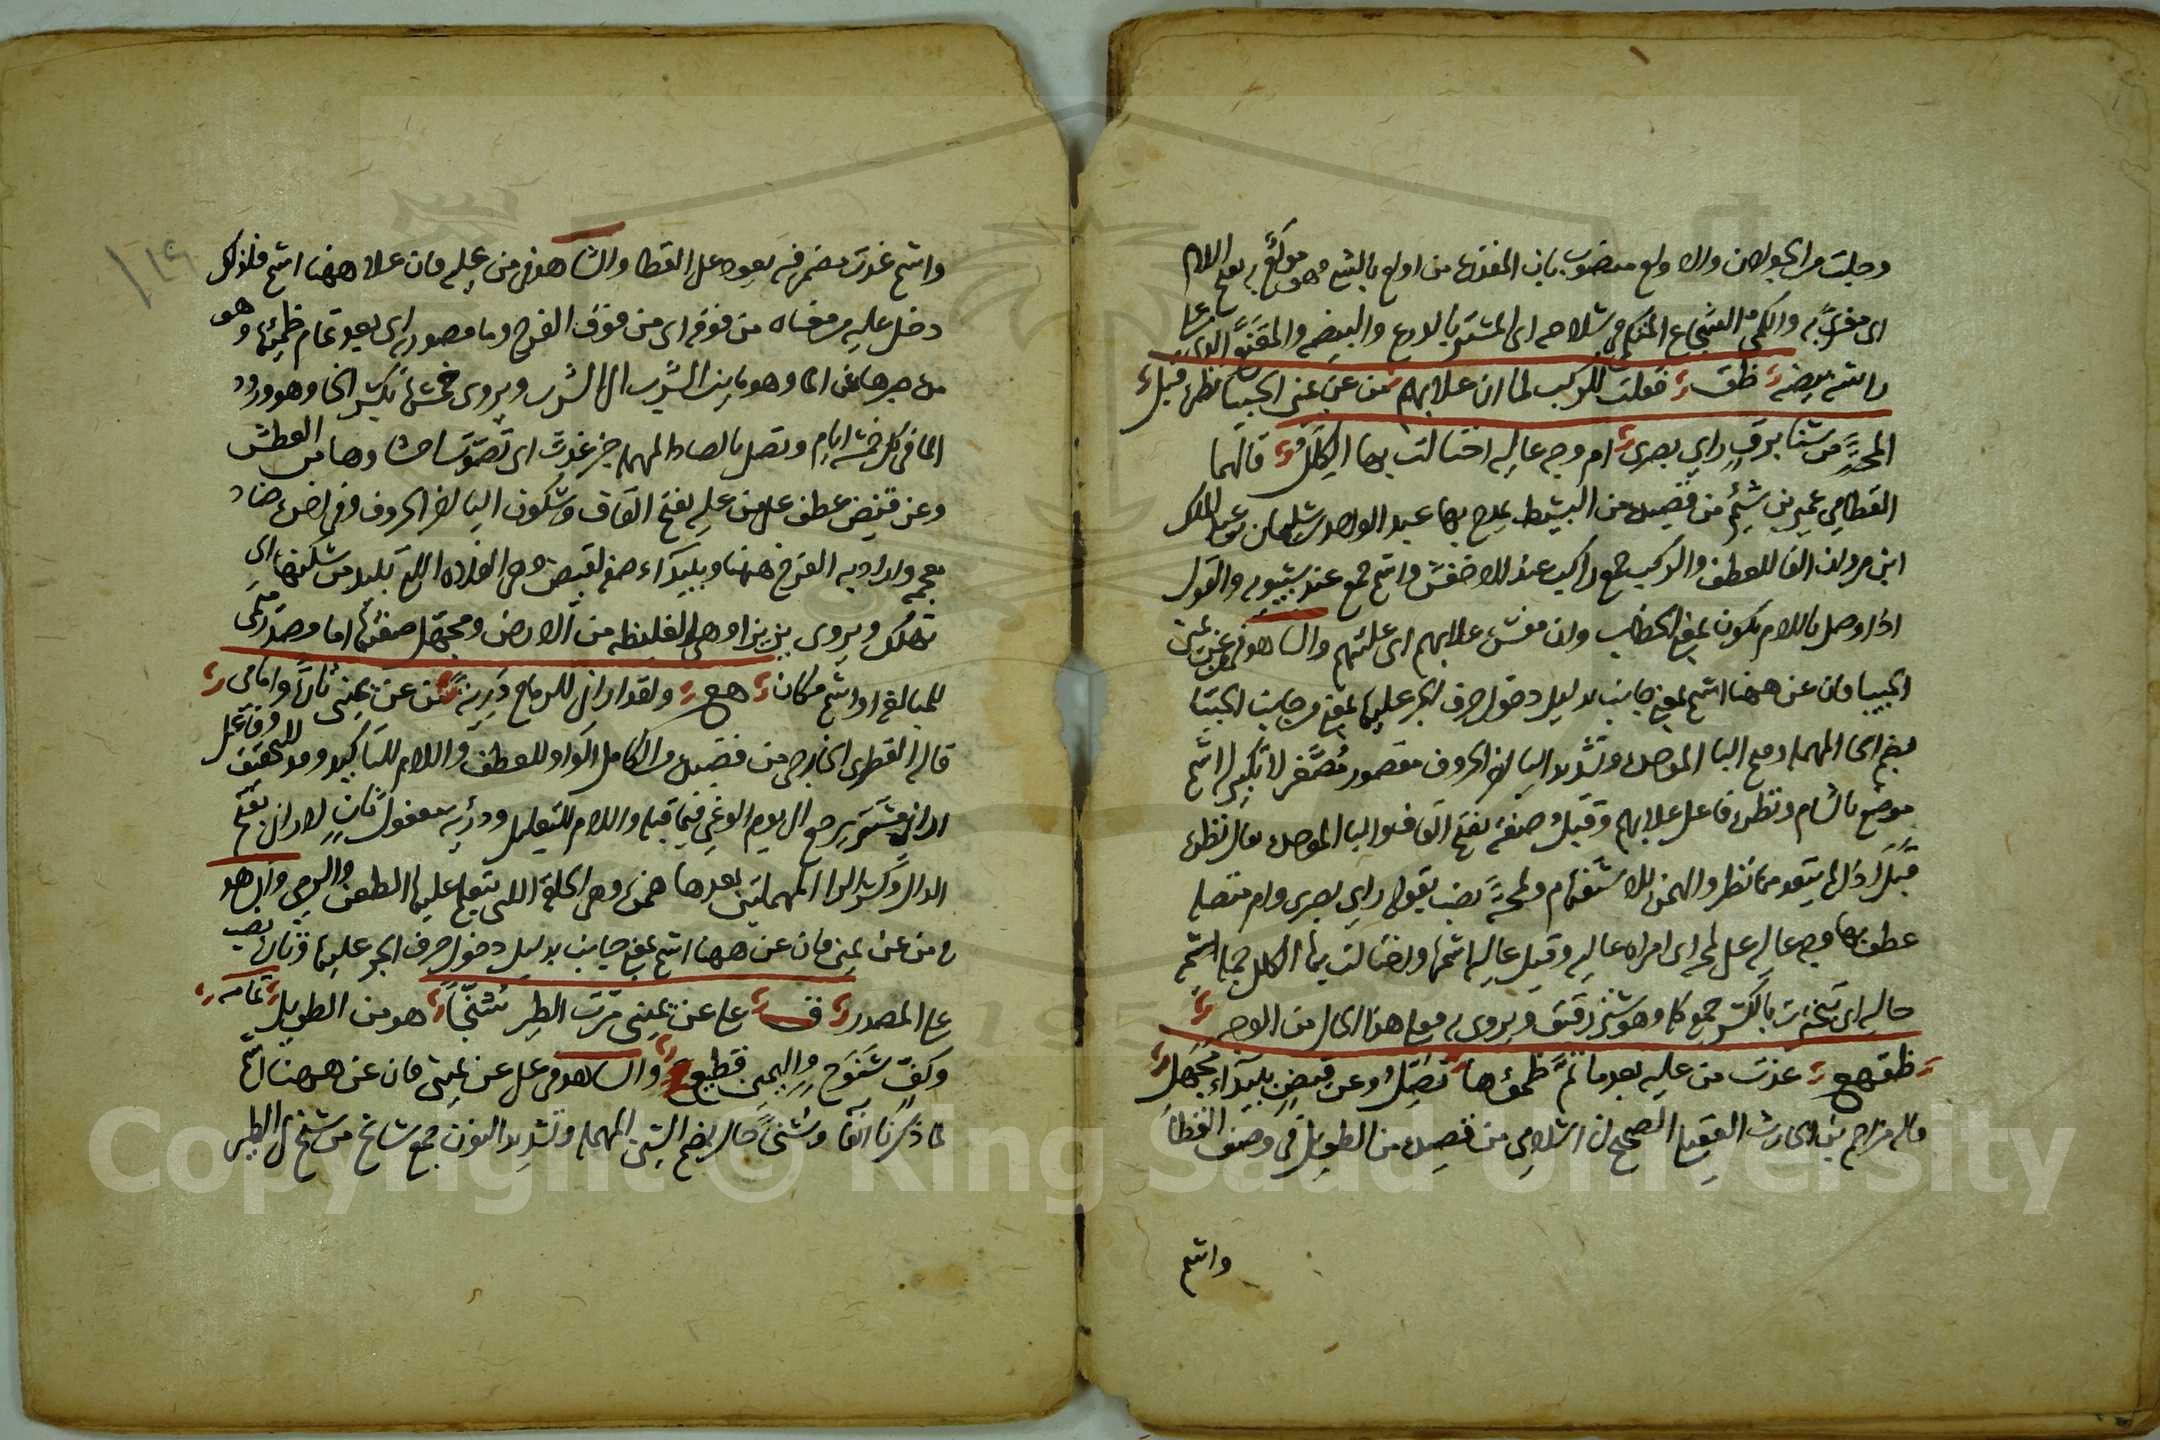 وجلت من الجولان والاولع منصوب بان المقدرة من اولع بالشيء وهو مولع به بفتح اللام
اى مغرى به والكمى الشجاع المتكمى بسلاحه اى المتستر بالدرع والبيضة والمقنع الذى على
راسه بيضة ظق فقلت للركب لما ان علا بهم من عن يمين الحبيا نظرة قبل
المحة من سنا برق راى بصرى ام وجه عالية اختالت بها الكلل قالهما
القطامى عمير بن شييم من قصيدة من البسيط يمدح بها عبد الواحد بن سليمان بن عبد الملك
ابن مروان الفا للعطف والركب جمع راكب عند الاخفش واسم جمع عند سيبويه والقول
اذا وصل باللام يكون بمعنى الخطاب وان مفسرة علا بهم اى علتهم والشاهد فى من عن يمين
الحبيا فان عن ههنا اسم بمعنى جانب بدليل دخول حرف الجر عليها بمعنى من جانب الحبيا
بضم الحا المهملة وفتح البا الموحدة وتشديد اليا اخر الحروف مقصور مصغر لا تكبير له اسم
موضع بالشام ونظرة فاعل علا بهم وقبل صفة بفتح القاف والبا الموحدة يقال نظرة
قبل اذا لم يتقدمها نظر والهمزة للاستفهام ولمحة نصب بقوله راى بصرى وام متصلة
عطف بها وجه عالية على لمحة اى امراة عالية وقيل عالية اسمها واختالت بها الكلل جملة اسمية
حالية اى تبخترت بالكسر جمع كلة وهو ستر رقيق ويروى به فعلى هذا الحال من الوجه
ظقهع غدت من عليه بعد ما تم ظمؤها تصل وعن قيض ببيداء مجهل
قاله مزاحم بن الحارث العقيلى الصحيح انه اسلامى من قصيدة من الطويل فى وصف القطا
واسم
واسم غدت مضمر فيه يعود على القطا والشاهد فى من عليه فان على ههنا اسم فلذلك
دخل عليه من معناه من فوقه اى من فوق الفرخ وما مصدرية اى بعد تمام ظمئها وهو
مدة صبرها عن الما وهو ما بين الشرب الى الشرب ويروى خمسها بكسر الخا وهو ورود
الما فى كل خمسة ايام وتصل بالصاد المهملة خبر غدت اى تصوت احشاؤها من العطش
وعن قيض عطف على من عليه بفتح القاف وسكون اليا اخر الحروف وفى اخره ضاد
معجمة واراد به الفرخ ههنا وببيداء صفة لقيض وهى المفازة التى تبيد من سكنها اى
تهلك ويروى بزيزاء وهى الغليظة من الارض ومجهل صفتها اما مصدر ميمى
للمبالغة او اسم مكان هع ولقد ارانى للرماح دريئة من عن يمينى تارة وامامى
قاله القطرى الخارجى من قصيدة من الكامل الواو للعطف واللام للتاكيد وقد للتحقيق وفاعل
ارانى مستتر يرجع الى يوم الوغى فيما قبله واللام للتعليل ودريئة مفعول ثان لارانى بفتح
الدال وكسر الرا المهملتين بعدها همزة وهى الحلقة التى يتعلم عليها الطعن والرمى والشاهد
فى من عن يمينى فان عن ههنا اسم بمعنى جانب بدليل دخول حرف الجر عليها وتارة نصب
على المصدر ق على عن يمينى مرت الطير سنحا هو من الطويل تمامه
وكيف سنوح واليمين قطيع والشاهد فى على عن يمينى فان عن ههنا اسم
لما ذكرنا انفا وسنحا حال بضم السين المهملة وتشديد النون جمع سانح من سنح لى الطير